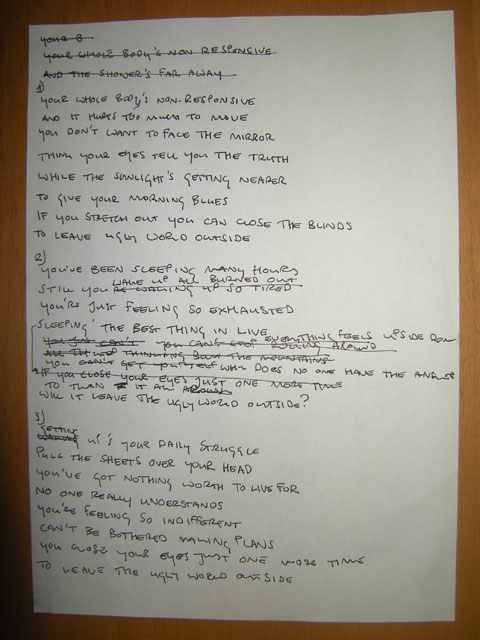 YOUR B
YOUR WHOLE BODY'S NON RESPONSIVE
AND THE SHOWER'S FAR AWAY
1)
YOUR WHOLE BODY'S NON-RESPONSIVE
AND IT HURTS TOO MUCH TO MOVE
YOU DON'T WANT TO FACE THE MIRROR
THINK YOUR EYES TELL YOU THE TRUTH
WHILE THE SUNLIGHT'S GETTING NEARER
TO GIVE YOUR MORNING BLUES
IF YOU STRETCH OUT YOU CAN CLOSE THE BLINDS
TO LEAVE UGLY WORLD OUTSIDE
2)
YOU'VE BEEN SLEEPING MANY HOURS
WAKE UP ALL BURNED OUT
STILL YOU'RE WAKING UP SO TIRED
YOU'RE JUST FEELING SO EXHAUSTED
SLEEPING' THE BEST THING IN LIVE
YOU JUST CAN'T YOU CAN'T STOP EVERYTHING FEELS UPSIDE DOWN
ROLLING AROUND
THINKING BOUT THE MOUNTAINS
YOU CAN'T GET YOURSELF WHY DOES NO ONE HAVE THE ANSWER
IF YOU CLOSE YOUR EYES JUST ONE MORE TIME
TO TURN IT ALL AROUND
WILL IT LEAVE THE UGLY WORLD OUTSIDE?
3)
GETTING
WAKING UP'S YOUR DAILY STRUGGLE
PULL THE SHEETS OVER YOUR HEAD
YOU'VE GOT NOTHING WORTH TO LIVE FOR
NO ONE REALLY UNDERSTANDS
YOU'RE FEELING SO INDIFFERENT
CAN'T BE BOTHERED MAKING PLANS
YOU CLOSE YOUR EYES JUST ONE MORE TIME
TO LEAVE THE UGLY WORLD OUTSIDE